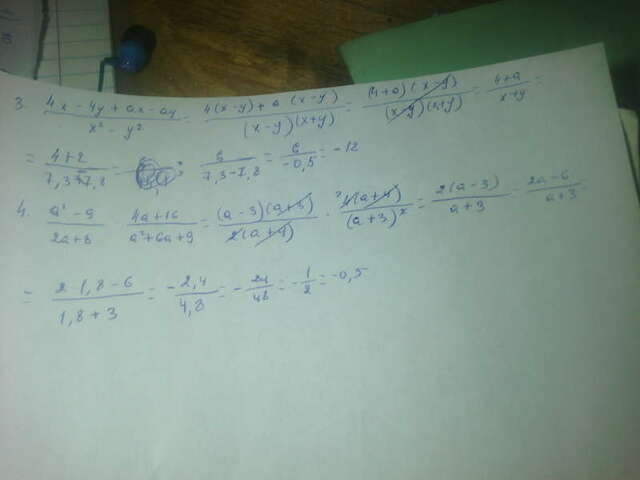 3. (4x - 4y + ax - ay)/(x² - y²) = (4(x-y) + a(x-y))/((x-y)(x+y)) = ((4+a)(x-y))/((x-y)(x+y)) = (4+a)/(x+y) =
= (4+2)/(7,3-7,8) = 6/(7,3-7,8) = 6/(-0,5) = -12
4. (a² - 9)/(2a+8) · (4a+16)/(a²+6a+9) = ((a-3)(a+3))/(2(a+4)) · (4(a+4))/((a+3)²) = (2(a-3))/(a+3) = (2a-6)/(a+3)
= (2·1,8-6)/(1,8+3) = -2,4/4,8 = -24/48 = -1/2 = -0,5